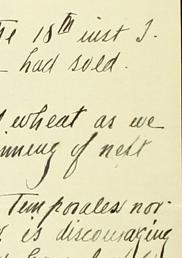 The 18th inst I.
had sold.
wheat as we
inning of next
Temporales nor
is discouraging